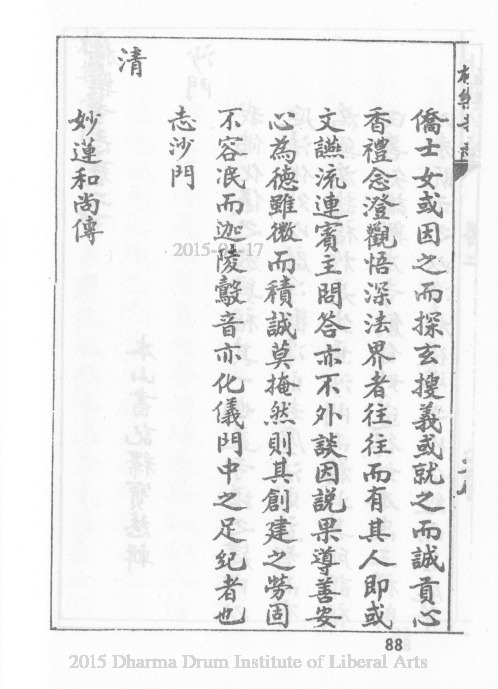 僑士女或因之而探玄搜義或就之而誠貢心
香禮念澄觀悟深法界者往往而有其人即或
文讌流連賓主問答亦不外談因説果導善安
心為德雖微而積誠莫掩然則其創建之勞固
不容泯而迦陵鷇音亦化儀門中之足紀者也
志沙門
清
妙蓮和尚傳
88
2015-04-17
2015 Dharma Drum Institute of Liberal Arts